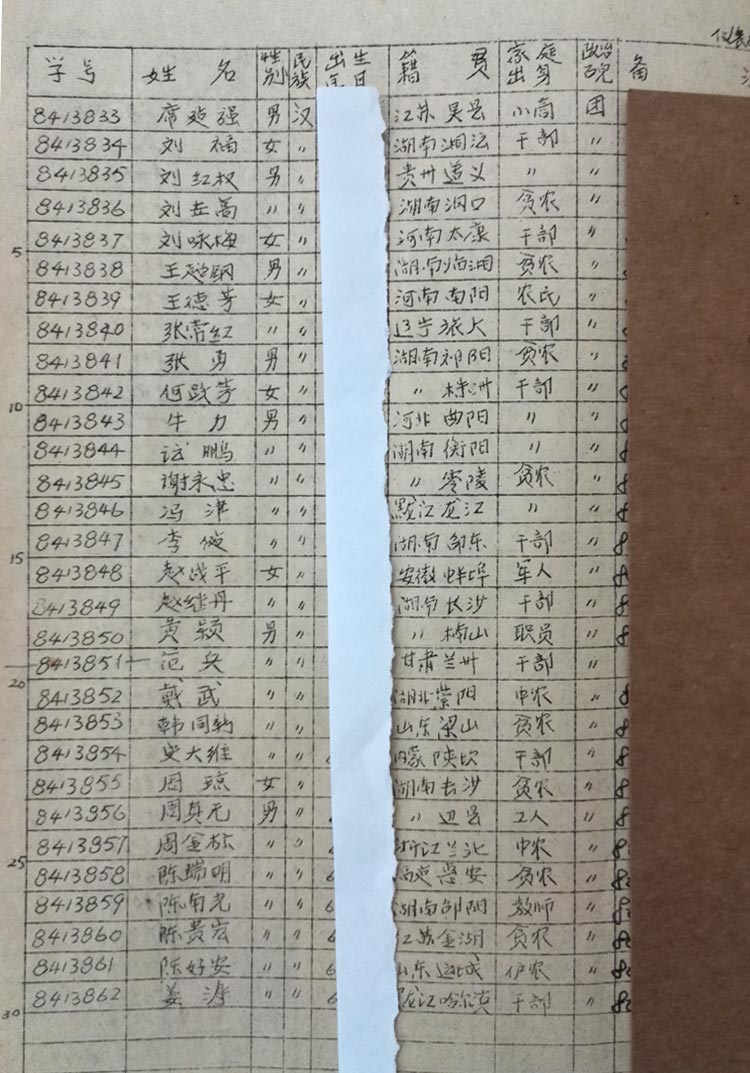 学号 姓名 性别 民族 出生 日 籍贯 家庭出身 政治 备
8413833 席 强 男 汉 江苏 吴县 小商 团
8413834 刘福 女 〃 湖南 干部 〃
8413835 刘红权 男 〃 贵州遵义 〃 〃
8413836 刘 〃 〃 湖南洞口 贫农 〃
5
8413837 刘咏梅 女 〃 河南太康 干部 〃
8413838 王 钢 男 〃 湖南临湘 贫农 〃
8413839 王德芳 女 〃 河南南阳 农民 〃
8413840 张 红 〃 〃 辽宁旅大 干部 〃
8413841 张勇 男 〃 湖南祁阳 贫农 〃
10
8413842 何政芳 女 〃 〃 株洲 干部 〃
8413843 牛力 男 〃 河北曲阳 〃 〃
8413844 鹏 〃 〃 湖南衡阳 〃 〃
8413845 谢永忠 〃 〃 〃 零陵 贫农 〃
8413846 冯津 〃 〃 龙江 〃 〃
15
8413847 李俊 〃 〃 湖南邵东 干部 〃
8413848 赵战平 女 〃 安徽蚌埠 军人 〃
8413849 赵继丹 〃 〃 湖南长沙 干部 〃
8413850 黄颖 男 〃 〃 职员 〃
20
8413851 范兵 〃 〃 甘肃兰州 干部 〃
8413852 戴武 〃 〃 湖北 阳 中农 〃
8413853 韩同 〃 〃 山东梁山 贫农 〃
8413854 大维 〃 〃 内蒙 干部 〃
8413855 周琼 女 〃 湖南长沙 贫农 〃
8413856 周真无 男 〃 〃 工人 〃
25
8413857 周金标 〃 〃 浙江 中农 〃
8413858 陈瑞明 〃 〃 福建惠安 贫农 〃
8413859 陈南光 〃 〃 6 湖南邵阳 教师 〃
8413860 陈贵宏 〃 〃 6 江苏金湖 贫农 〃
8413861 陈好安 〃 〃 6 山东 农 〃
30
8413862 姜涛 〃 〃 6 龙江哈尔滨 干部 〃